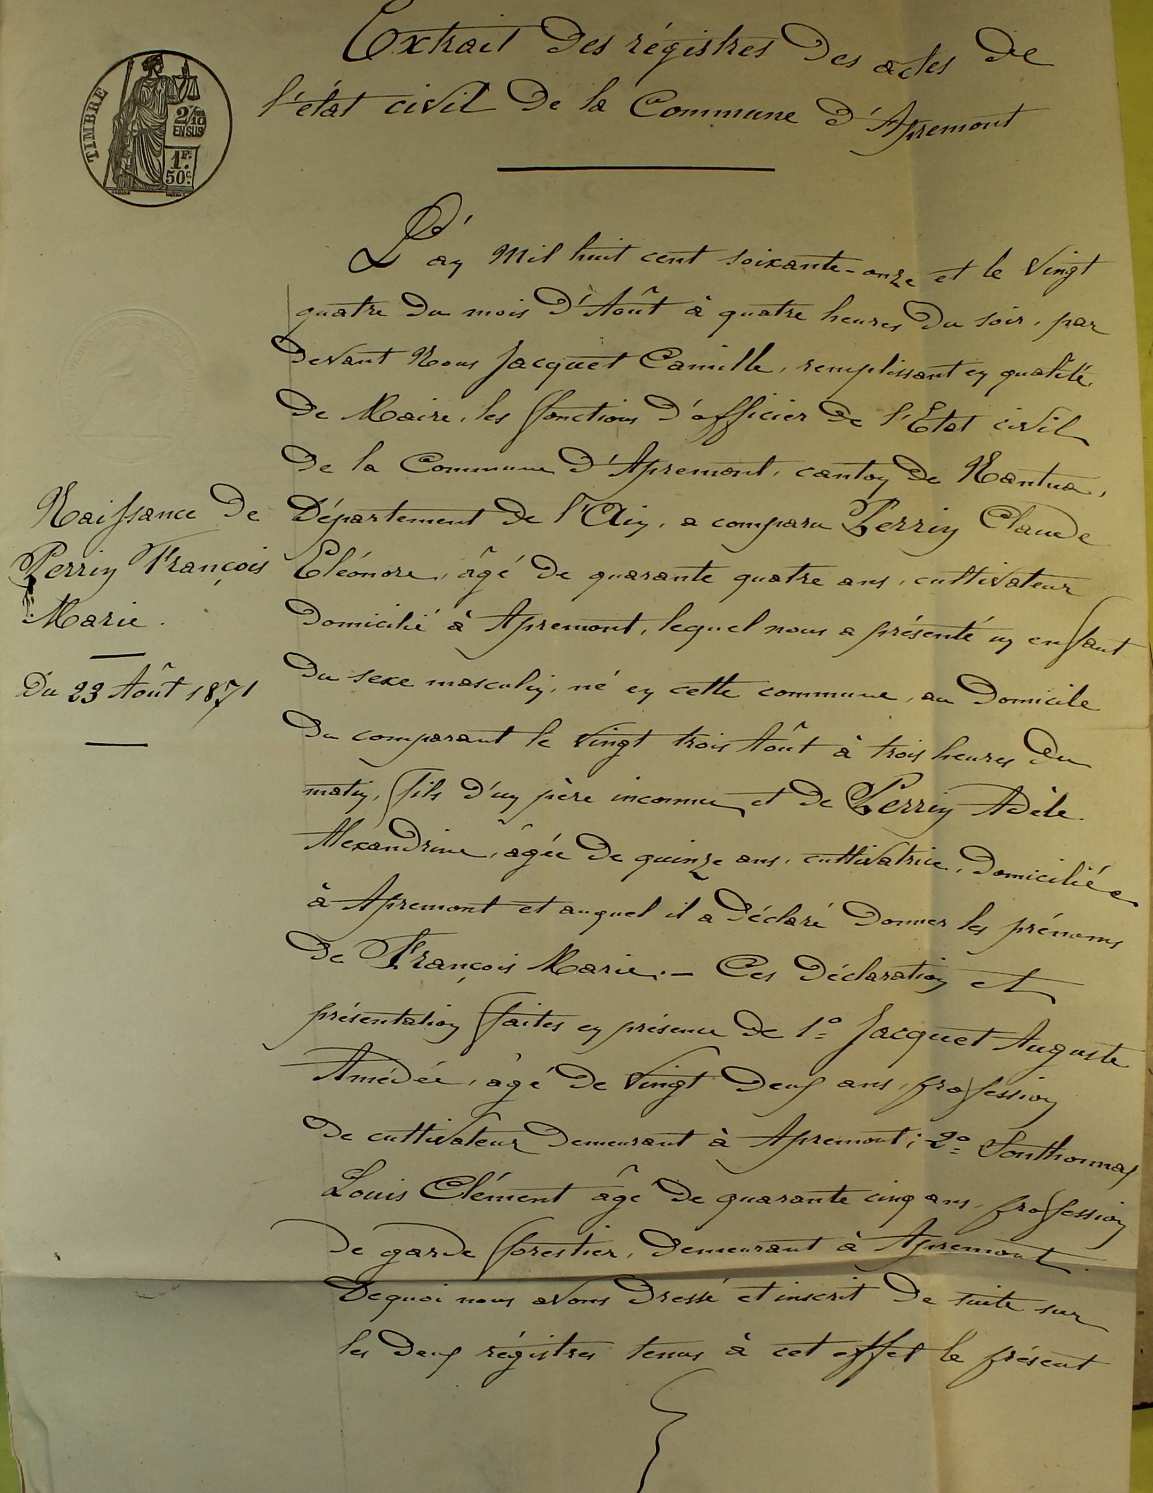 Extrait des régistres des actes de
l'état civil de la Commune d'Apremont
TIMBRE
2/10
EN SUS
1F.
50c.
L'an mil huit cent soixante-onze et le vingt
quatre du mois d'Août à quatre heures du soir, par
devant Nous Jacquet Camille, remplissant en qualité
de Maire, les fonctions d'officier de l'Etat civil
de la Commune d'Apremont, canton de Nantua,
Département de l'Ain, a comparu Perrin Claude
Eléonore, âgé de quarante quatre ans, cultivateur
domicilié à Apremont, lequel nous a présenté un enfant
du sexe masculin, né en cette commune, au domicile
du comparant le vingt trois Août à trois heures du
matin, fils d'un père inconnu et de Perrin Adèle
Alexandrine, âgée de quinze ans, cultivatrice, domiciliée
à Apremont et auquel il a déclaré donner les prénoms
de François Marie. – Ces déclaration et
présentation faites en présence de 1° Jacquet Auguste
Amédée, âgé de vingt deux ans, profession
de cultivateur demeurant à Apremont; 2° Sonthonnax
Louis Clément âgé de quarante cinq ans, profession
de garde forestier, demeurant à Apremont.
De quoi nous avons dressé et inscrit de suite sur
les deux régistres tenus à cet effet le présent
Naissance de
Perrin François
Marie.
Du 23 Août 1871